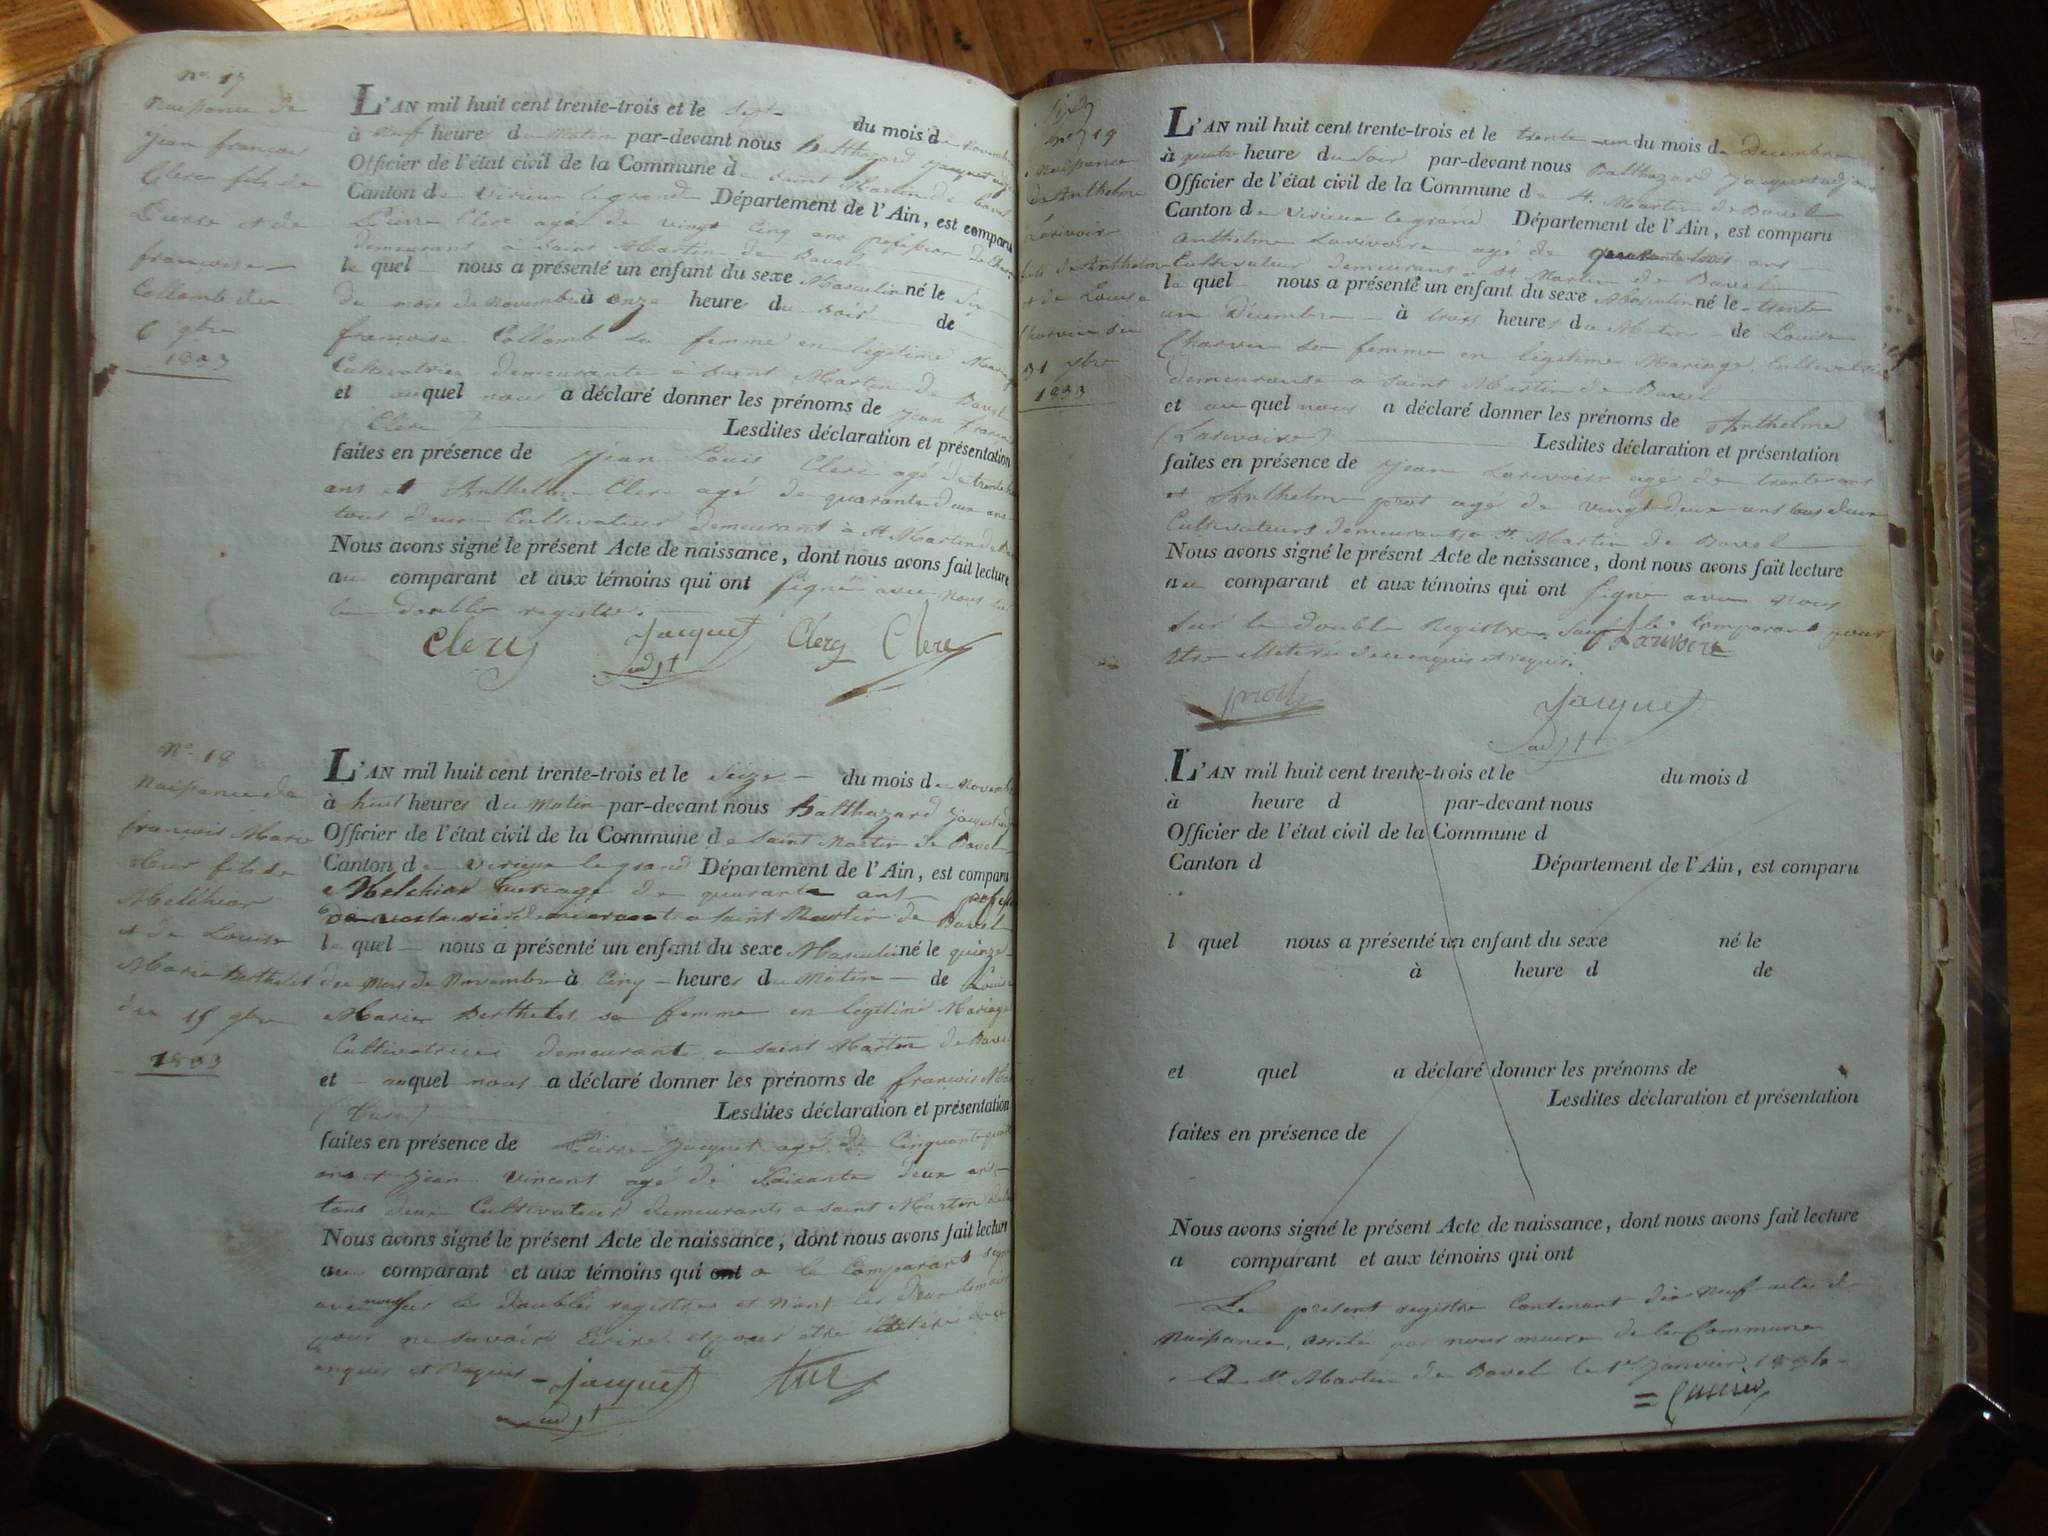 nº 17
Naissance de
jean francois
Clerc fils de
Pierre et de
francoise
Collomb du
6 9bre
1833
L'AN mil huit cent trente-trois et le sept du mois de novembre
à neuf heures du Matin par-devant nous Balthazard jacquet adjt
Officier de l'état civil de la Commune de saint Martin de bavel
Canton de virieux le grand Département de l'Ain, est comparu
Pierre Clerc agé de vingt cinq ans profession de
demeurant a saint Martin de Bavel
le quel nous a présenté un enfant du sexe Masculin né le six
du mois de novembre à onze heures du soir de
francoise Collomb sa femme en légitime Mariage
Cultivatrice demeurante a saint Martin de Bavel
et auquel nous a déclaré donner les prénoms de jean francois
Clerc Lesdites déclaration et présentation
faites en présence de jean Louis Clerc agé de trente
ans et Anthelme Clerc agé de quarante deux ans
tous deux Cultivateurs demeurant à St Martin de Bavel
Nous avons signé le présent Acte de naissance, dont nous avons fait lecture
au comparant et aux témoins qui ont signé avec nous sur
le double registre.
Clerc jacquet Clerc Clerc
adjt
Nº 18
Naissance de
francois Marie
fils de
Melchior
et de Louise
Marie Berthelet
du 15 9bre
1833
L'AN mil huit cent trente-trois et le seize du mois de novembre
à huit heures du matin par-devant nous Balthazard jacquet adjt
Officier de l'état civil de la Commune de saint Martin de Bavel
Canton de virieux le grand Département de l'Ain, est comparu
Melchior agé de quarante ans profession
demeurant a saint Martin de Bavel
le quel nous a présenté un enfant du sexe Masculin né le quinze
du Mois de Novembre à Cinq heures du Matin de Louise
Marie Berthelet sa femme en legitime Mariage
Cultivatrice demeurant a saint Martin de Bavel
et auquel nous a déclaré donner les prénoms de francois Marie
Lesdites déclaration et présentation
faites en présence de Pierre Jacquet agé de Cinquante quatre
ans et jean vincent agé de Soixante deux ans
tous deux Cultivateurs demeurants a saint Martin de
Nous avons signé le présent Acte de naissance, dont nous avons fait lecture
au comparant et aux témoins qui ont a le Comparant signé
avec nous sur les doubles registres et non les deux temoins
pour ne savoir Ecrire et pour etre illétéré de ce
enquis et Requis jacquet
adjt
nº 19
Naissance
de Anthelme
Larivoire
fils de Anthelme
et de Louise
Charvin du
31 xbre
1833
L'AN mil huit cent trente-trois et le trente-un du mois de Décembre
à quatre heures du soir par-devant nous Balthazard jacquet adjt
Officier de l'état civil de la Commune de St. Martin de Bavel
Canton de virieux le grand Département de l'Ain, est comparu
Anthelme Larivoire agé de quarante trois ans
Cultivateur demeurant a St Martin de Bavel
le quel nous a présenté un enfant du sexe Masculin né le trente
un Décembre à trois heures du Matin de Louise
Charvin sa femme en legitime Mariage Cultivatrice
demeurante a saint Martin de Bavel
et auquel nous a déclaré donner les prénoms de Anthelme
(Larivoire) Lesdites déclaration et présentation
faites en présence de jean Larivoire agé de trente ans
et Anthelme prost agé de vingt deux ans tous deux
Cultivateurs demeurants a St Martin de Bavel
Nous avons signé le présent Acte de naissance, dont nous avons fait lecture
au comparant et aux témoins qui ont signé avec nous
sur le double Registre sauf le Comparant pour
etre illétéré de ce enquis et requis. Larivoire
prost jacquet
adjt
L'AN mil huit cent trente-trois et le du mois d
à heure d par-devant nous
Officier de l'état civil de la Commune d
Canton d Département de l'Ain, est comparu
l quel nous a présenté un enfant du sexe né le
à heure d de
et quel a déclaré donner les prénoms de
Lesdites déclaration et présentation
faites en présence de
Nous avons signé le présent Acte de naissance, dont nous avons fait lecture
a comparant et aux témoins qui ont
Le présent registre Contenant dix neuf actes de
Naissance, arrêté par nous maire de la Commune
A St. Martin de Bavel le 1er janvier 1834